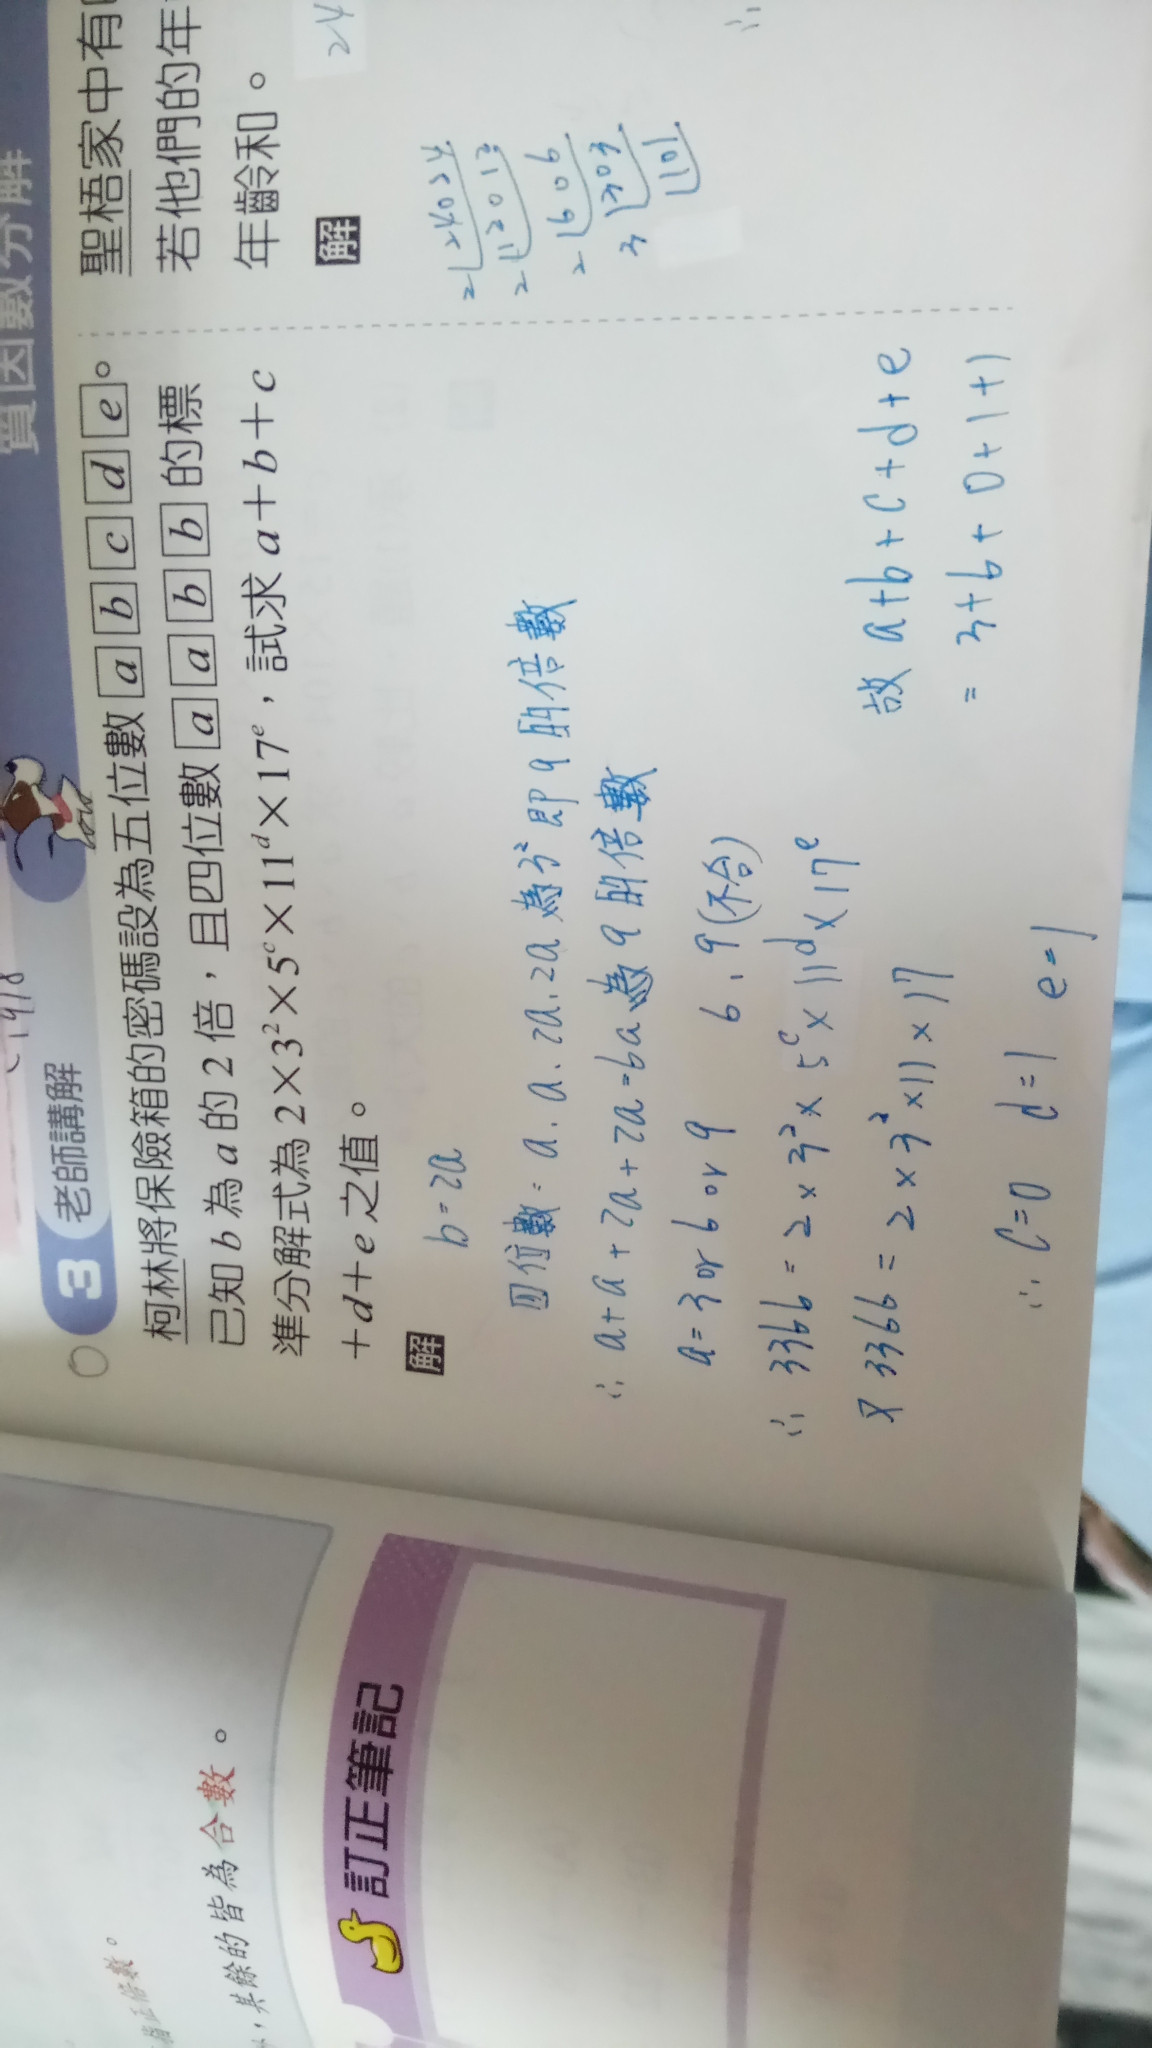 質因數分解
3 老師講解
柯林將保險箱的密碼設為五位數 a b c d e 。
已知 b 為 a 的 2 倍，且四位數 a a b b 的標
準分解式為 2×3²×5ᶜ×11ᵈ×17ᵉ，試求 a＋b＋c
＋d＋e 之值。
解
b=2a
四位數= a.a.2a.2a為3²即9的倍數
∴ a+a+2a+2a=6a為9的倍數
a=3 or 6 or 9 6,9(不合)
∴ 3366 = 2×3²×5ᶜ×11ᵈ×17ᵉ
又 3366 = 2×3²×11×17
∴ c=0 d=1 e=1
故 a+b+c+d+e
= 3+6+0+1+1
聖梧家中有
若他們的年
年齡和。
解
24
∴
101
訂正筆記
，其餘的皆為合數。
正倍數。